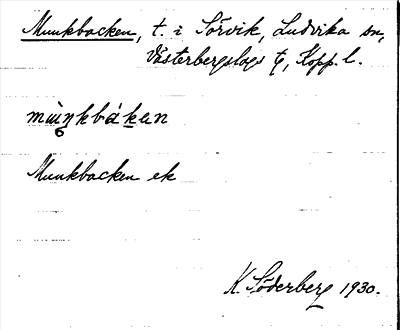 Munkbacken, t. i Sörvik, Ludvika sn,
Västerbergslags tg, Kopp. l.
mùŋkbákan
Munkbacken ek
K. Söderberg 1930.